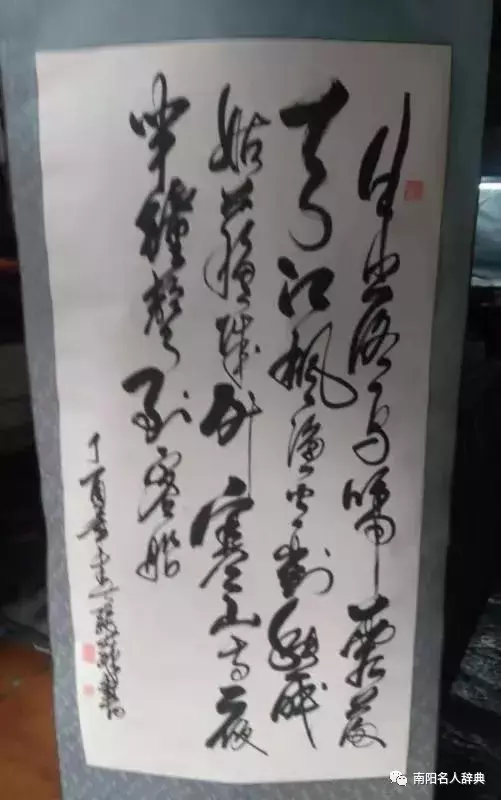 月落乌啼霜满
天江枫渔火对愁眠
姑蘇城外寒山寺夜
半鐘聲到客船
丁酉春
南阳名人辞典